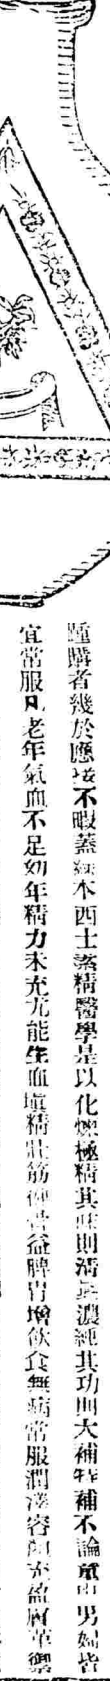 踵購者幾於應接不暇蓋經本西士素精醫學是以化煉極精其味則清與濃純其功則大補特補不論童叟男婦皆
宜常服凡老年氣血不足幼年精力未充尤能生血塡精壯筋健骨益脾胃增飲食無病常服潤澤容顏充盈膚革禦